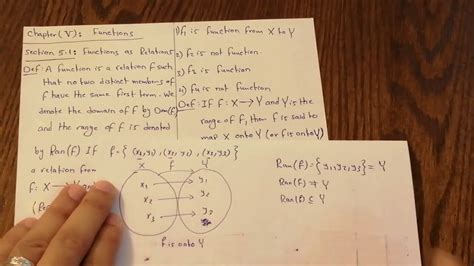 Chapter (V): Functions
Section 5.1: Functions as Relations
Def: A function is a relation f such
that no two distinct members of
f have the same first term. We
denote the domain of f by Dom(f)
and the range of f is denoted
by Ran(f) If f = { (x1,y1), (x2,y2), (x3,y3) }
a relation from
f: X → Y
X f Y
x1 y1
x2 y2
x3 y3
f is onto Y
1) f1 is function from X to Y
2) f2 is not function.
3) f3 is function
4) f4 is not function
Def: If f: X → Y and Y is the
range of f, then f is said to
map X onto Y (or f is onto Y)
Ran(f) = { y1, y2, y3 } = Y
Ran(f) ≠ Y
Ran(f) ⊆ Y